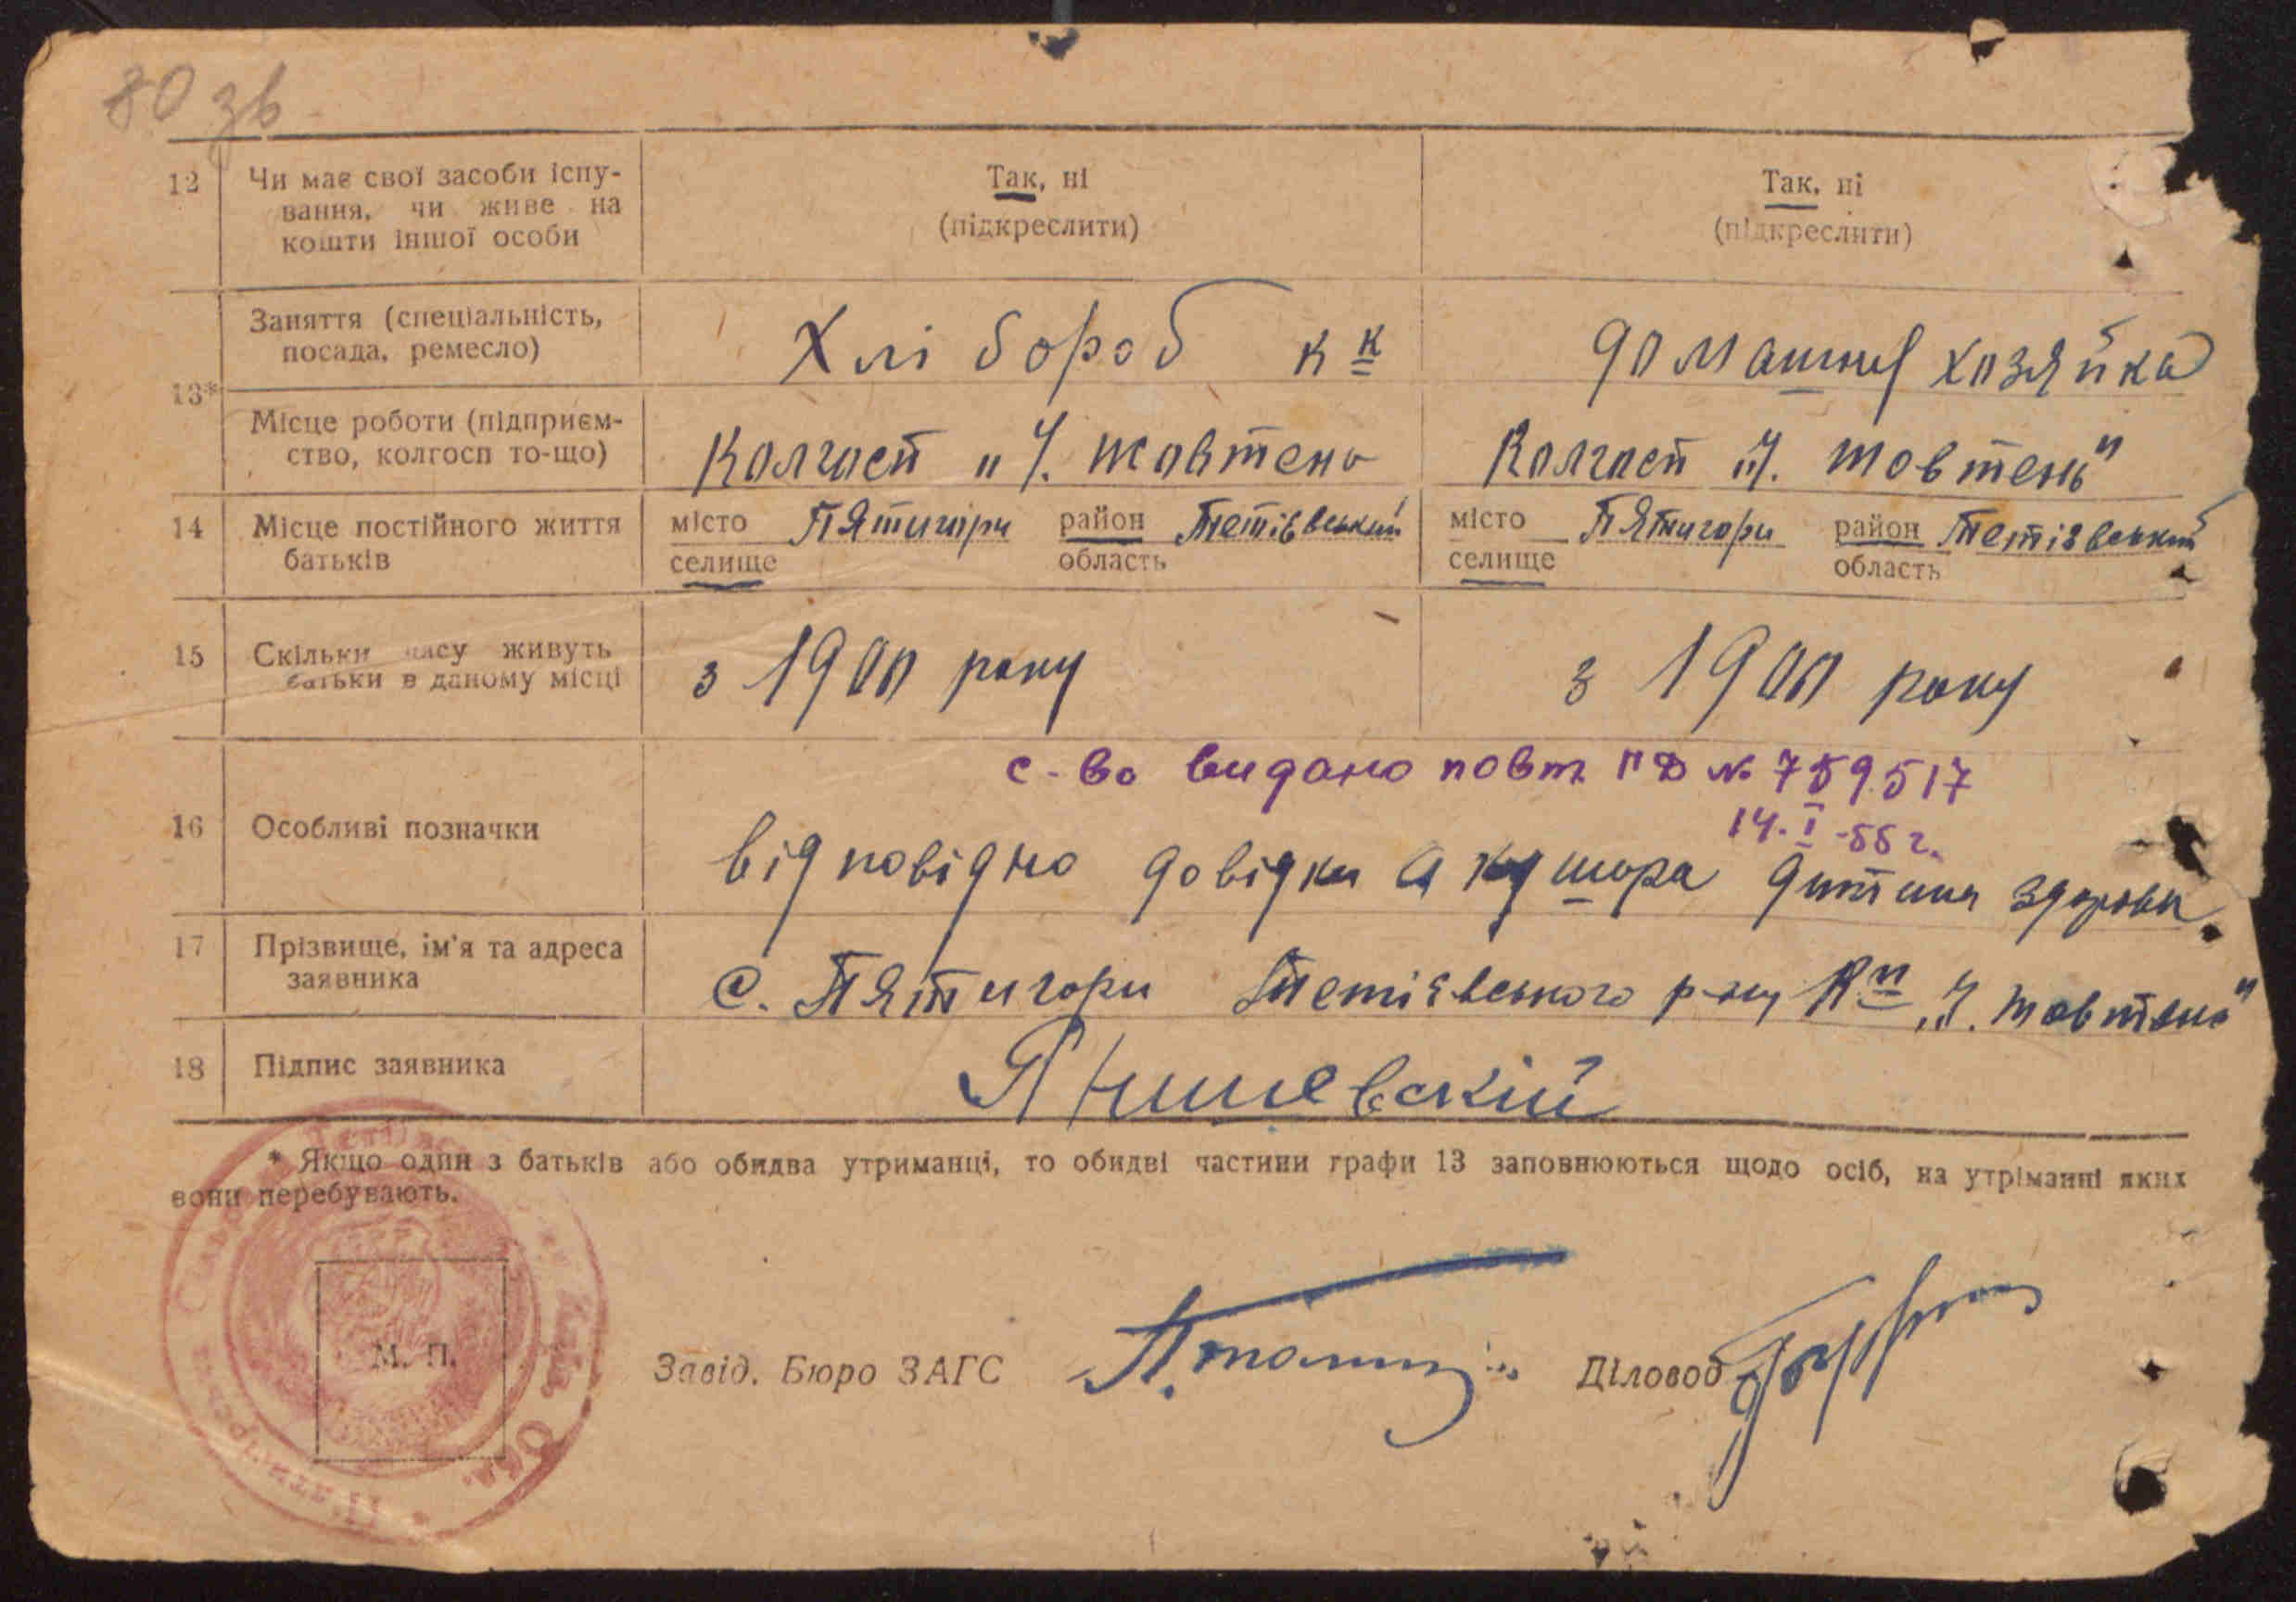 80 зв
12 Чи має свої засоби існу-
вання, чи живе на
кошти іншої особи
Так, ні
(підкреслити)
Так, ні
(підкреслити)
13*
Заняття (спеціальність,
посада, ремесло)
Хлібороб к к
домашня хозяйка
Місце роботи (підприєм-
ство, колгосп то-що)
Колгосп „ Ч. жовтень
Колгосп „Ч. жовтень"
14 Місце постійного життя
батьків
місто
селище
Пятигори
район
область
Тетіївський
місто
селище
Пятигори
район
область
Тетіївський
15 Скільки часу живуть
батьки в даному місці
з 1900 року
з 1900 року
16 Особливі позначки
с-во видано повт. ПД № 759517
14. I -55 г.
відповідно довідки акушора дитина здорова
17 Прізвище, ім'я та адреса
заявника
с. Пятигори Тетіївського р-ну Кп „Ч. жовтень"
18 Підпис заявника
Янишевский
* Якщо один з батьків або обидва утриманці, то обидві частини графи 13 заповнюються щодо осіб, на утріманні яких
вони перебувають.
М. П.
Завід. Бюро ЗАГС
Діловод